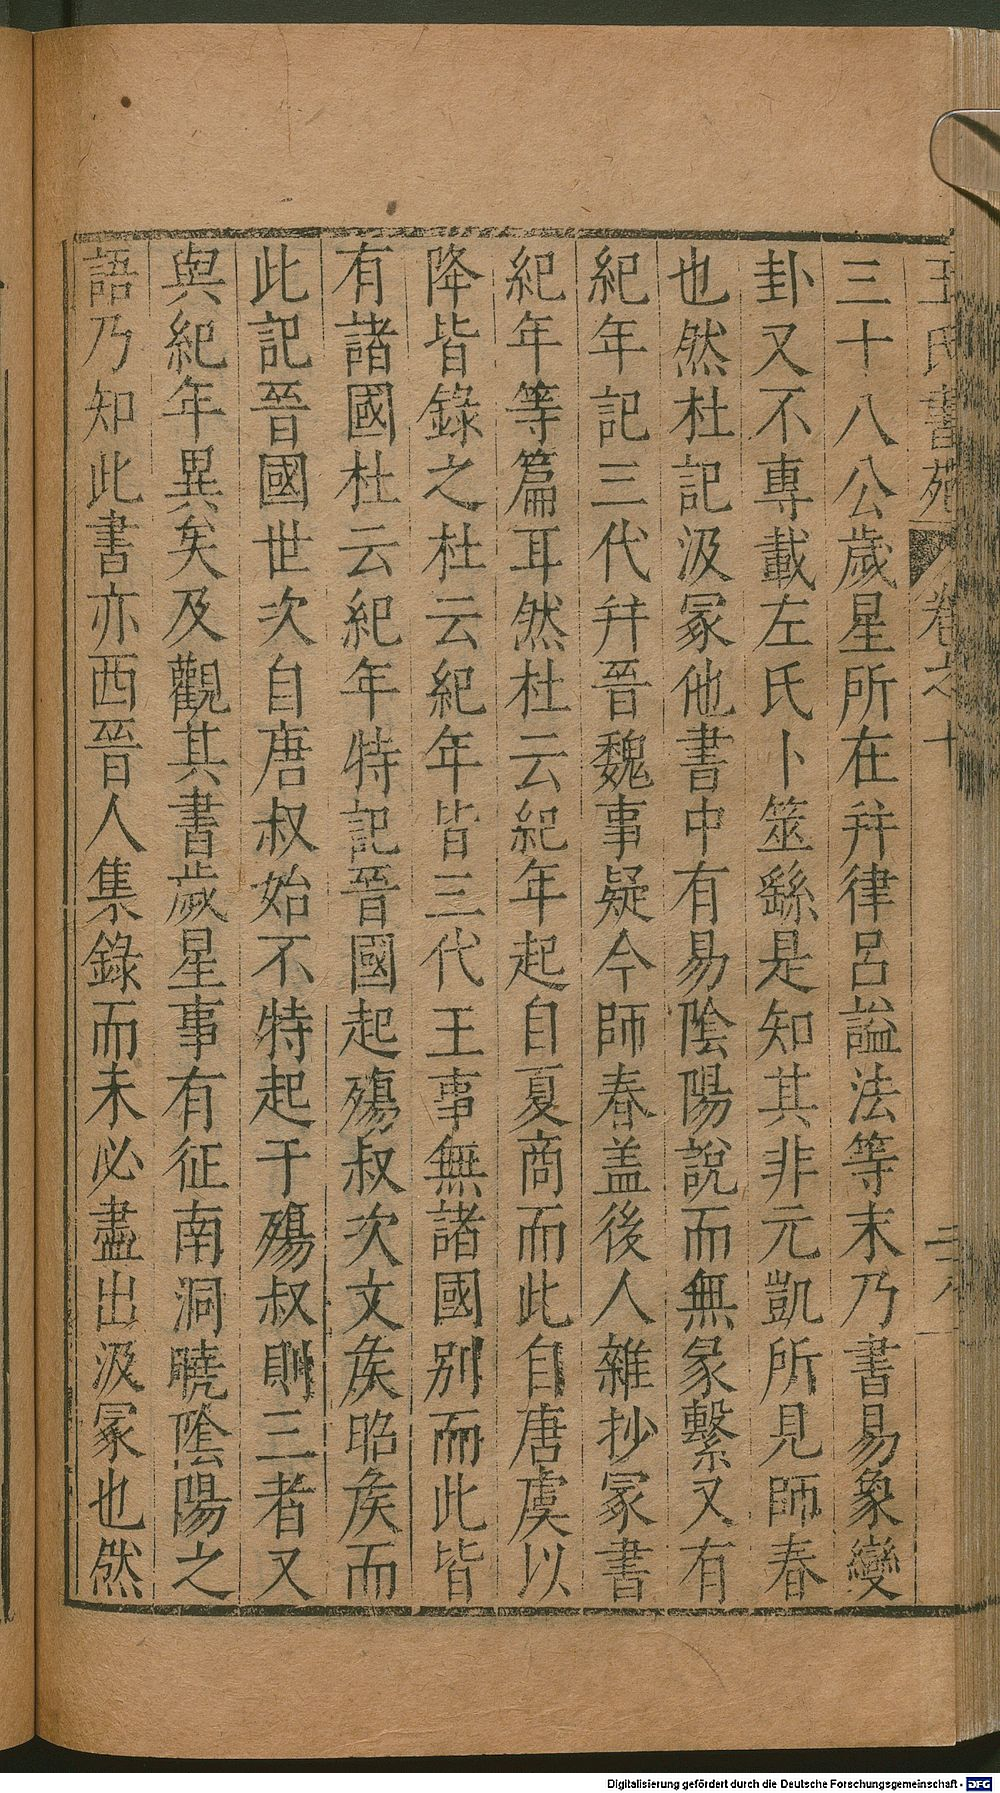 王氏書苑 卷之十
三十八公歲星所在并律呂謚法等末乃書易象變
卦又不專載左氏卜筮繇是知其非元凱所見師春
也然杜記汲冢他書中有易陰陽說而無彖繫又有
紀年記三代并晉魏事疑今師春盖後人雜抄冢書
紀年等篇耳然杜云紀年起自夏商而此自唐虞以
降皆錄之杜云紀年皆三代王事無諸國别而此皆
有諸國杜云紀年特記晉國起殤叔次文矦昭矦而
此記晉國世次自唐叔始不特起于殤叔則三者又
與紀年異矣及觀其書歲星事有征南洞曉陰陽之
語乃知此書亦西晉人集錄而未必盡出汲冢也然
Digitalisierung gefördert durch die Deutsche Forschungsgemeinschaft - DFG